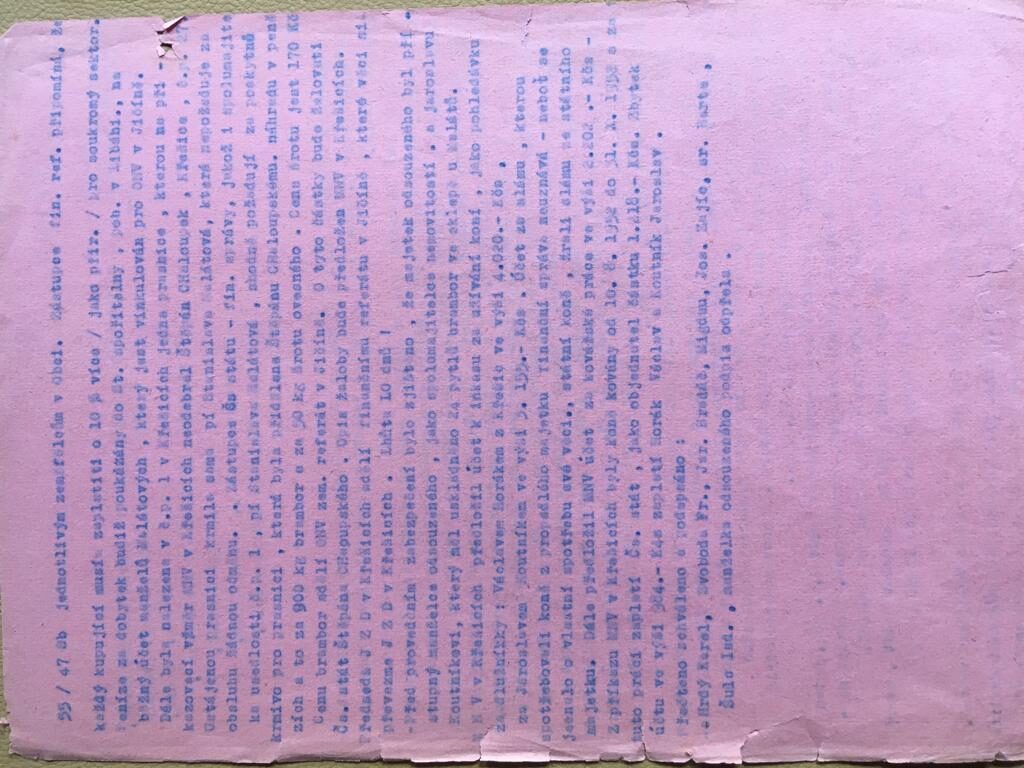 55 / 47 Sb jednotlivým zemědělcům v Obci. Zástupce fin. ref. připomíná, že
každý kupující musí zaplatiti o 10 % více / jako přir. / pro soukromý sektor.
Peníze za dobytek budiž poukázány do St. spořitelny , poh. v Libáni., na
běžný účet manželů Malátových , který jest vinkulován pro ONV v Jičíně.
Dále byla nalezena v č.p. 1 v Křešicích jedna prasnice , kterou na při -
kazovací výměr MNV v Křešicích neodebral Štěpán Chaloupek , Křešice , č.p.
Ustájenou prasnici krmila sama pí Stanislava Malátová, která nepožaduje za
obsluhu žádnou odměnu. . Zástupce čs státu - fin. správy, jakož i spolumajite
ka usedlosti č.p. 1 , pí Stanislava Malátová , shodně požadují za poskytnu
krmivo pro prasnici , která byla přidělena Štěpánu Chaloupekmu. náhradu v pen
zích a to za 900 kg brambor a za 50 kg šrotu ovesného . Cena šrotu jest 170 Kč
Cenu brambor sdělí ONV zem. referát v Jičíně. O tyto částky bude žalovati
Čs. stát Štěpána Chaloupského . Opis žaloby bude předložen MNV v Křešicích.
Předseda J Z D v Křešicích sdělí finančnímu referátu v Jičíně , které věci si
převezme J Z D v Křešicích . Lhůta 10 dnů !
-Před provedením zabezpečení bylo zjištěno , že majetek odsouzeného byl pří -
stupný manželce odsouzeného , jako spolumajitelce nemovitosti . a Jaroslavu
Koutníkovi, který měl uskladněno 24 pytlů brambor ve sklepě u Malátů.
M N V v Křešicích předložil účet k inkasu za užívání koní , jako pohledávku
za dlužníky: Václavem Horákem z Křešic ve výši 4.020.- Kčs ,
za Jaroslavem Koutníkem ve výši 5. - Kčs . Účet za slámu , kterou
spotřebovali koně z propadlého majetku finanční správa neuznává - neboť se
jednalo o vlastní spotřebu své věci, státní koně , žrali slámu ze státního
majetku. Dále předložil MNV účet za kovářské práce ve výši 2.202 .- Kčs -
Z příkazu MNV v Křešicích byly koně kovány od 10. č. 1952 do 31. X. 1953 a za
tuto práci zaplatí Čs. stát , jako objednatel částku 1.218.- Kčs. Zbytek
účtu ve výši 984.- Kčs zaplatí Horák Václav a Koutník Jaroslav .
Přečteno schváleno a podepsáno :
Hrdý Karel, Svoboda Fr., Jar. Šredát, Jos. Zajíc, ,
Šulc Lad., , manželka odsouzeného podpis odepřela .